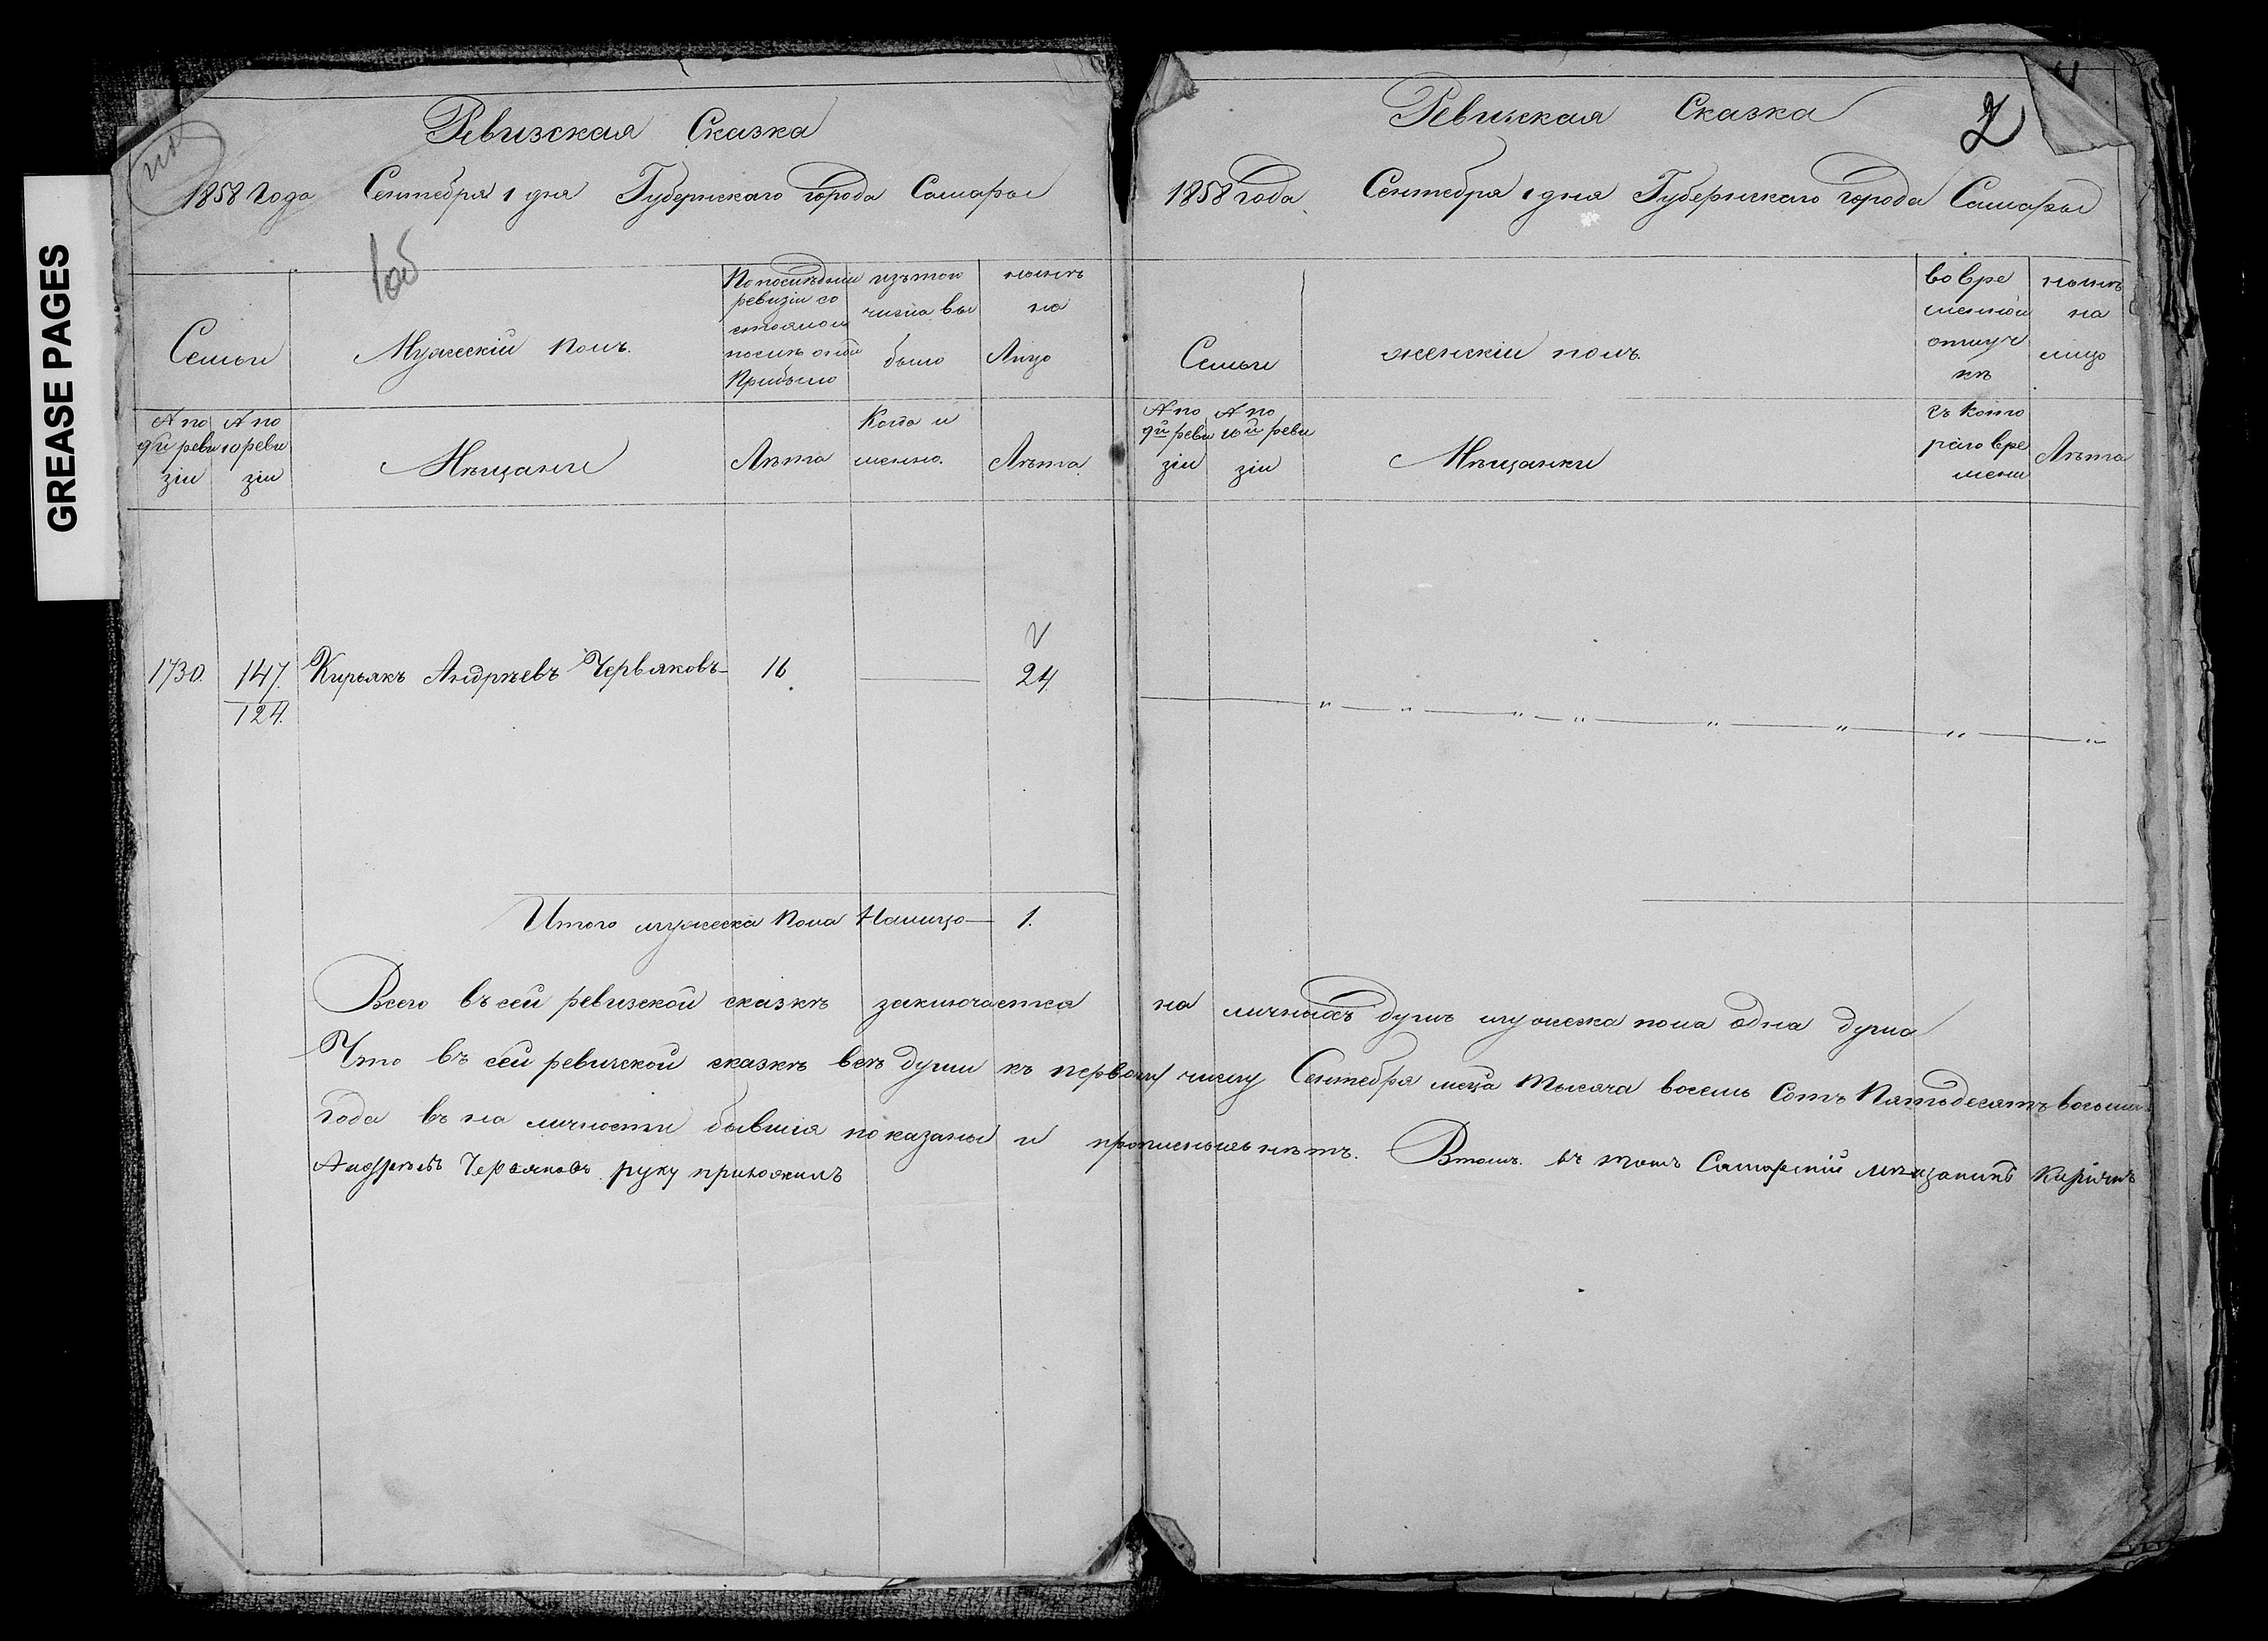 GREASE PAGES
Ревизская Сказка
1858 Года Сентебря 1 дня Губернскаго города Самары
Семьи
Мужескій полъ.
По последней ревизіи со
стояло и
после оной
Прибыло
изъ того
числа вы
было
ныне
на
Лицо
№ по
9й реви
зіи
№ по
10 реви
зіи
Мѣщане
Лѣта
Когда и
менно.
Лѣта
1730. 147. Кирьякъ Андрѣевъ Червяковъ 16 — 24
124.
Итого мужеска пола Налицо — 1.
Ревизская Сказка
2
1858 года Сентебря 1 дня Губернскаго города Самары
Семьи
женскій полъ.
во вре
менной
отлуч
кѣ
ныне
на
лицо
№ по
9й реви
зіи
№ по
10й реви
зіи
Мѣщанки
съ кото
раго вре
мени
Лѣта
Всего въ сей ревизской сказкѣ заключается на личныхъ душъ мужеска пола одна душа
Что въ сей ревизской сказкѣ всѣ души къ первому числу Сентебря месца тысяча восемь сотъ пятьдесятъ восьмаго
года въ на личности бывшія показаны и прописныхъ нѣтъ. Въ томъ Самарскій мѣщанинъ Кирьякъ
Андрѣевъ Червяковъ руку приложилъ